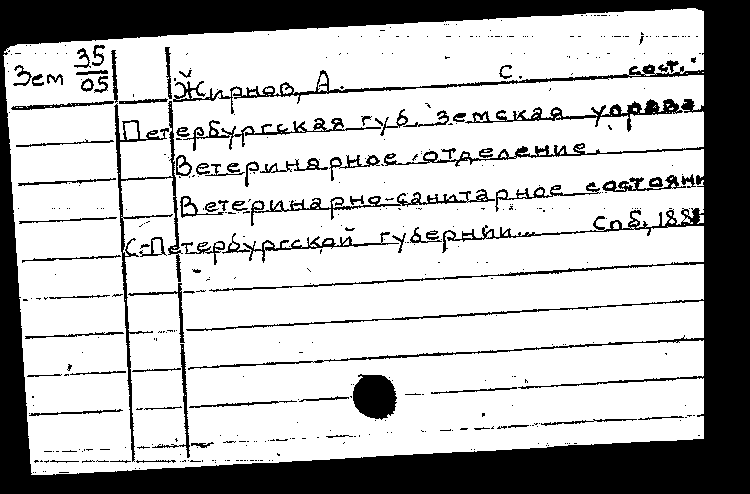 Зем 35/05
Жирнов, А. с. сост.
Петербургская губ. земская управа.
Ветеринарное отделение.
Ветеринарно-санитарное состояни
С-Петербургской губернии... Спб,